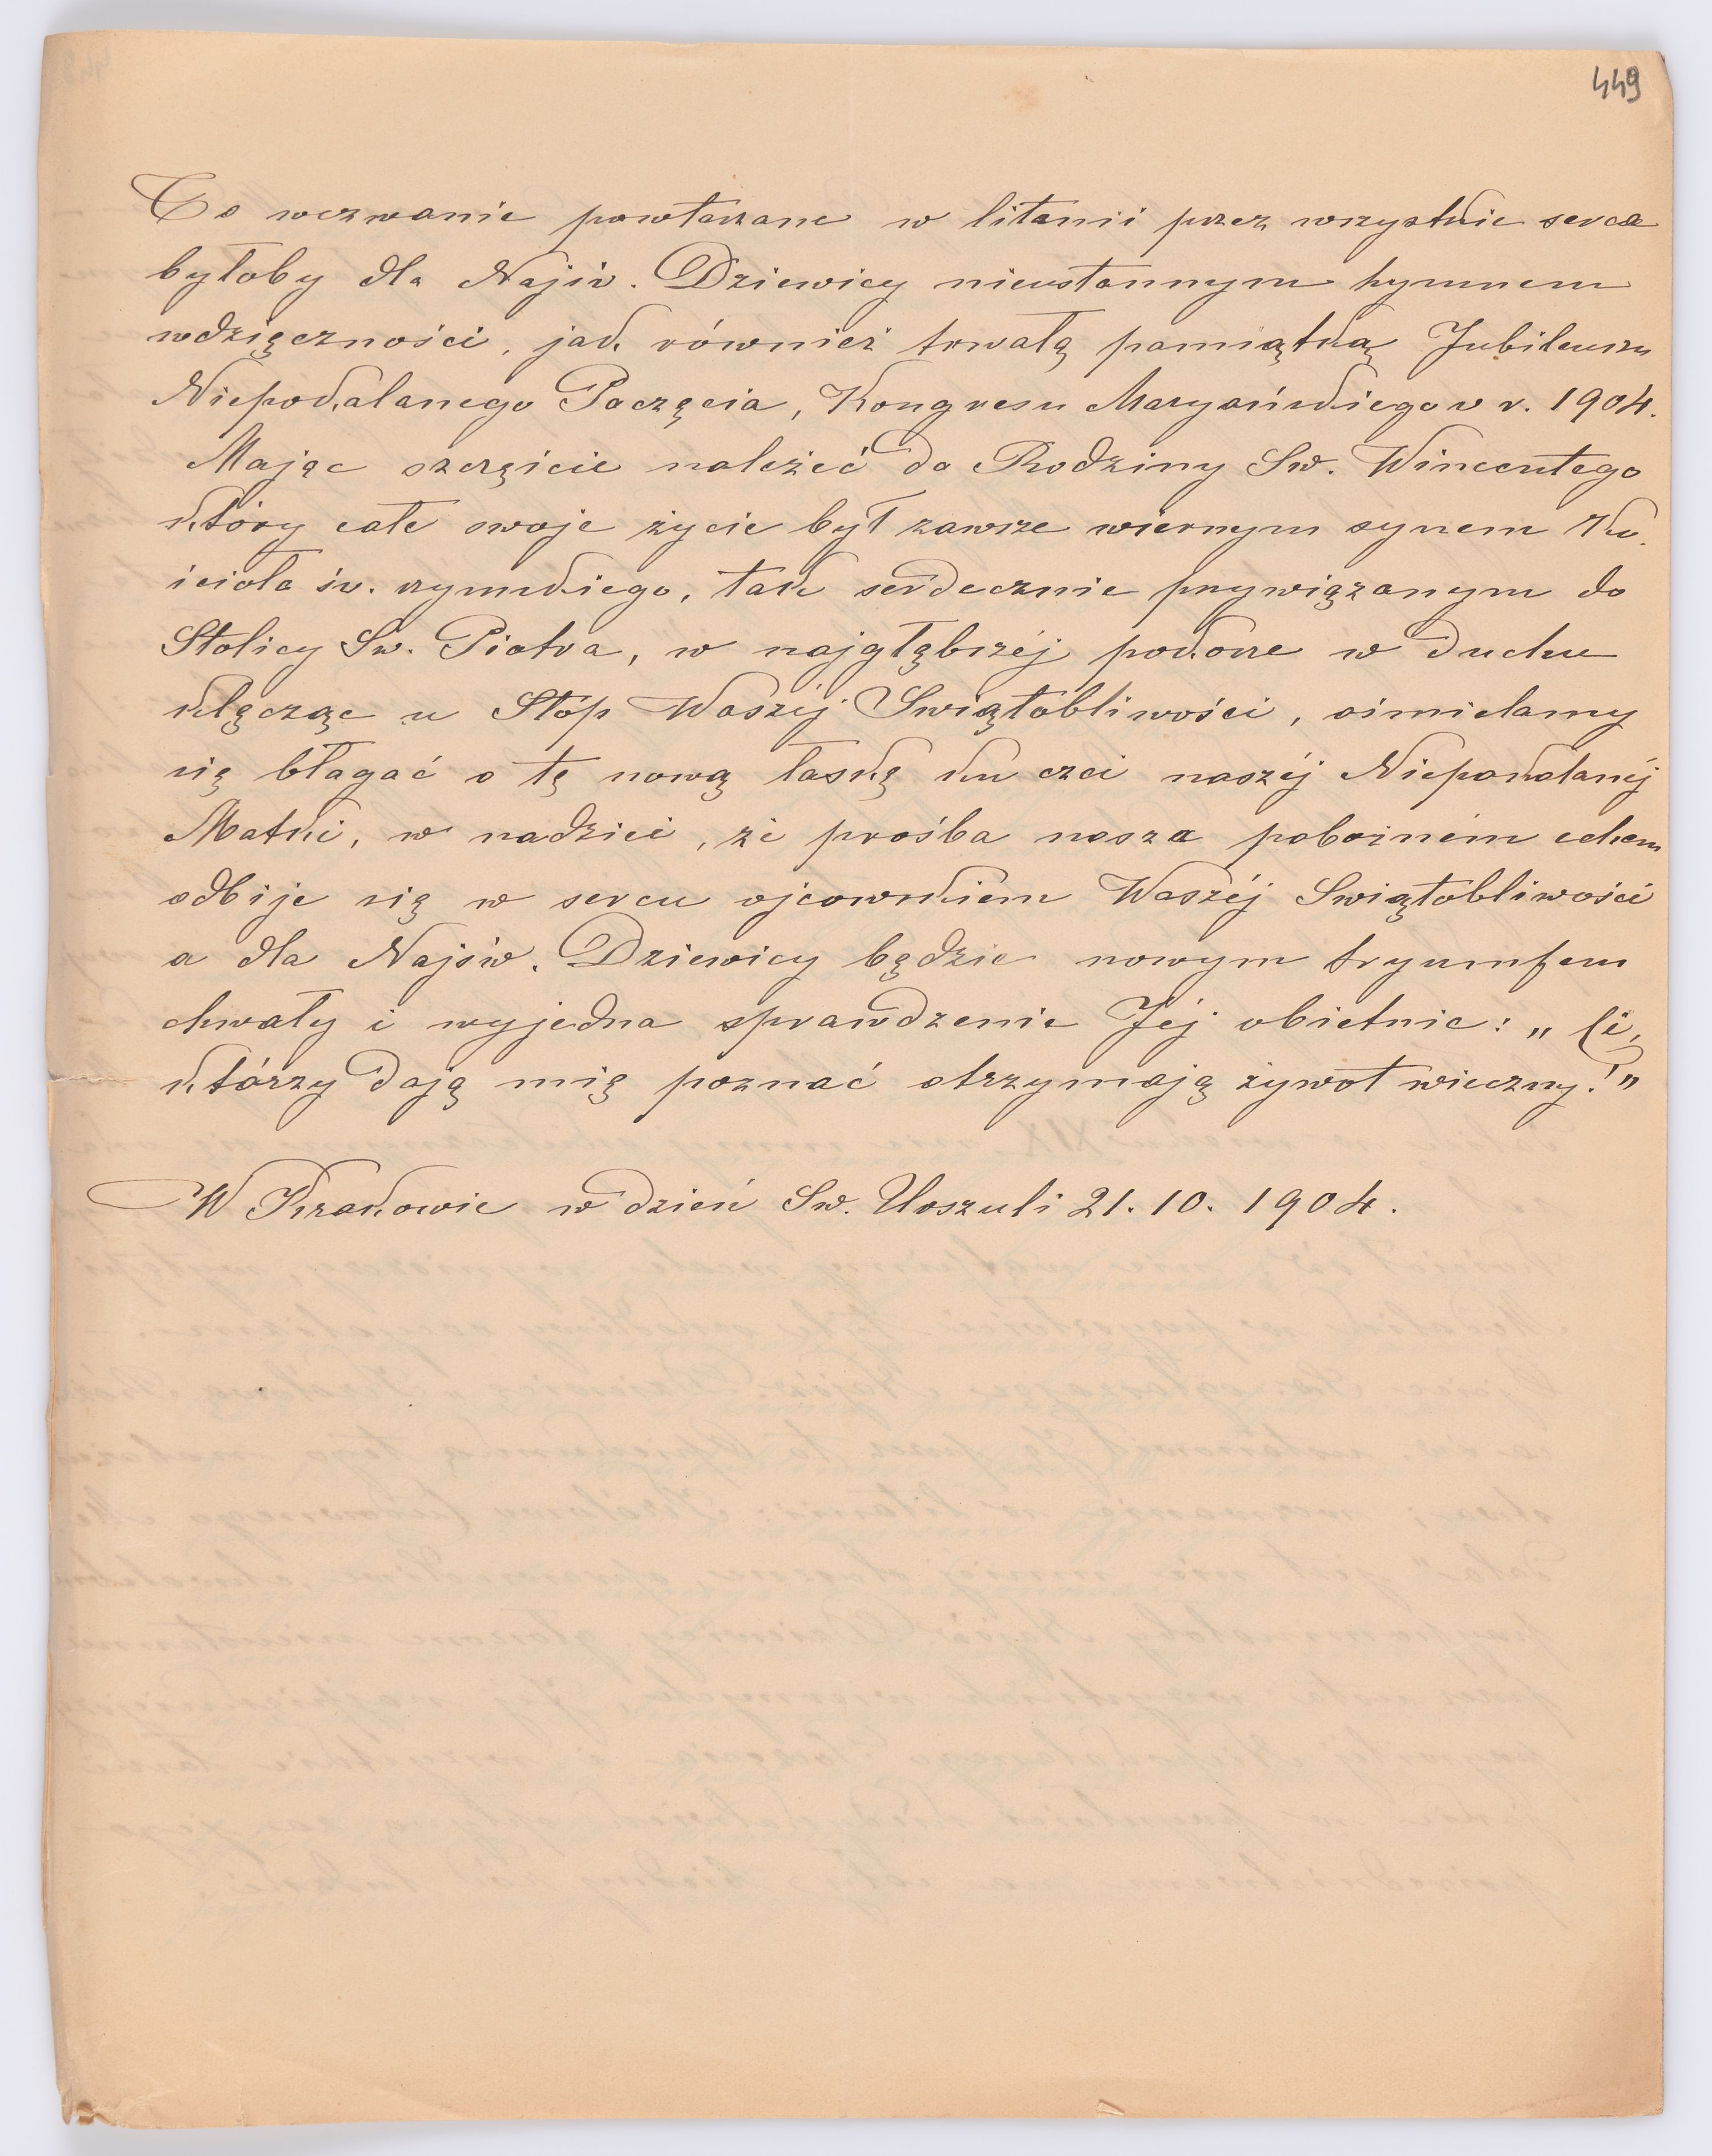 449
To wezwanie powtarzane w litanii przez wszystkie serca
byłoby dla Najśw. Dziewicy nieustannym hymnem
wdzięczności, jak również trwałą pamiątką Jubileuszu
Niepokalanego Poczęcia, Kongresu Maryańskiego v r. 1904.
Mając szczęście należeć do Rodziny Św. Wincentego
który całe swoje życie był zawsze wiernym synem Ko-
ścioła św. rzymskiego, tak serdecznie przywiązanym do
Stolicy Św. Piotra, w najgłębszéj pokorze w duchu
klęcząc u Stóp Waszéj Świątobliwości, ośmielamy
się błagać o tę nową łaskę ku czci naszéj Niepokalanéj
Matki, w nadziei, że prośba nasza pobożném echem
odbije się w sercu ojcowskiem Waszéj Świątobliwości
a dla Najśw. Dziewicy będzie nowym tryumfem
chwały i wyjedna sprawdzenie Jéj obietnic: „Ci,
którzy dają mię poznać otrzymają żywot wieczny!"
W Krakowie w dzień Św. Urszuli 21. 10. 1904.